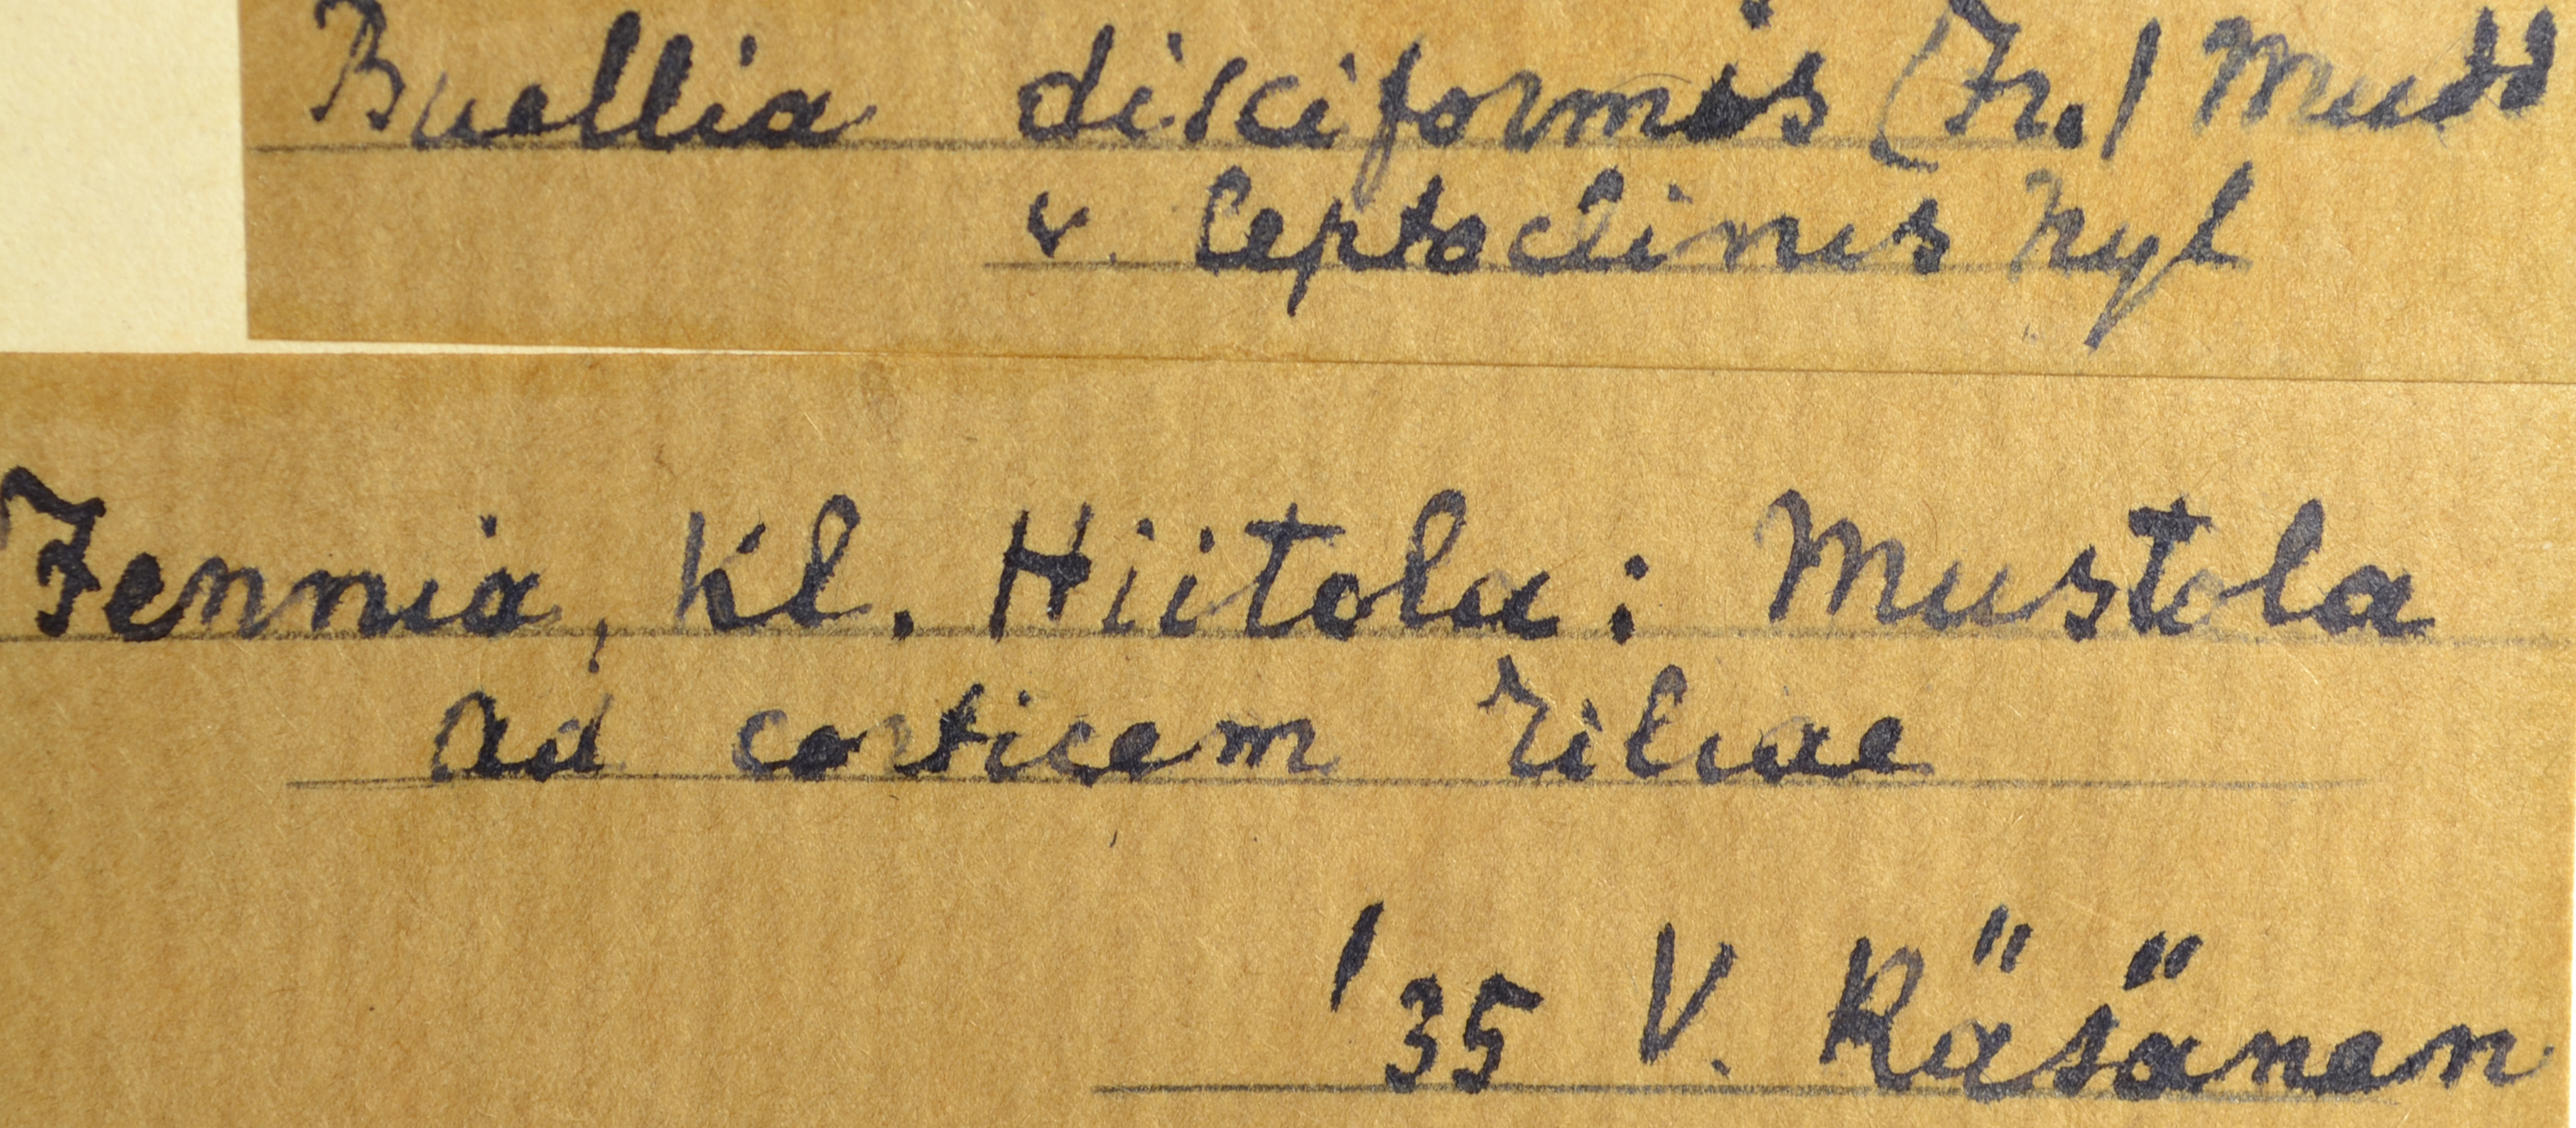 Buellia disciformis (Fr.) Mudd
v. leptoclinis Nyl
Fennia, Kl. Hiitola: Mustola
ad corticem Tiliae
'35 V. Räsänen